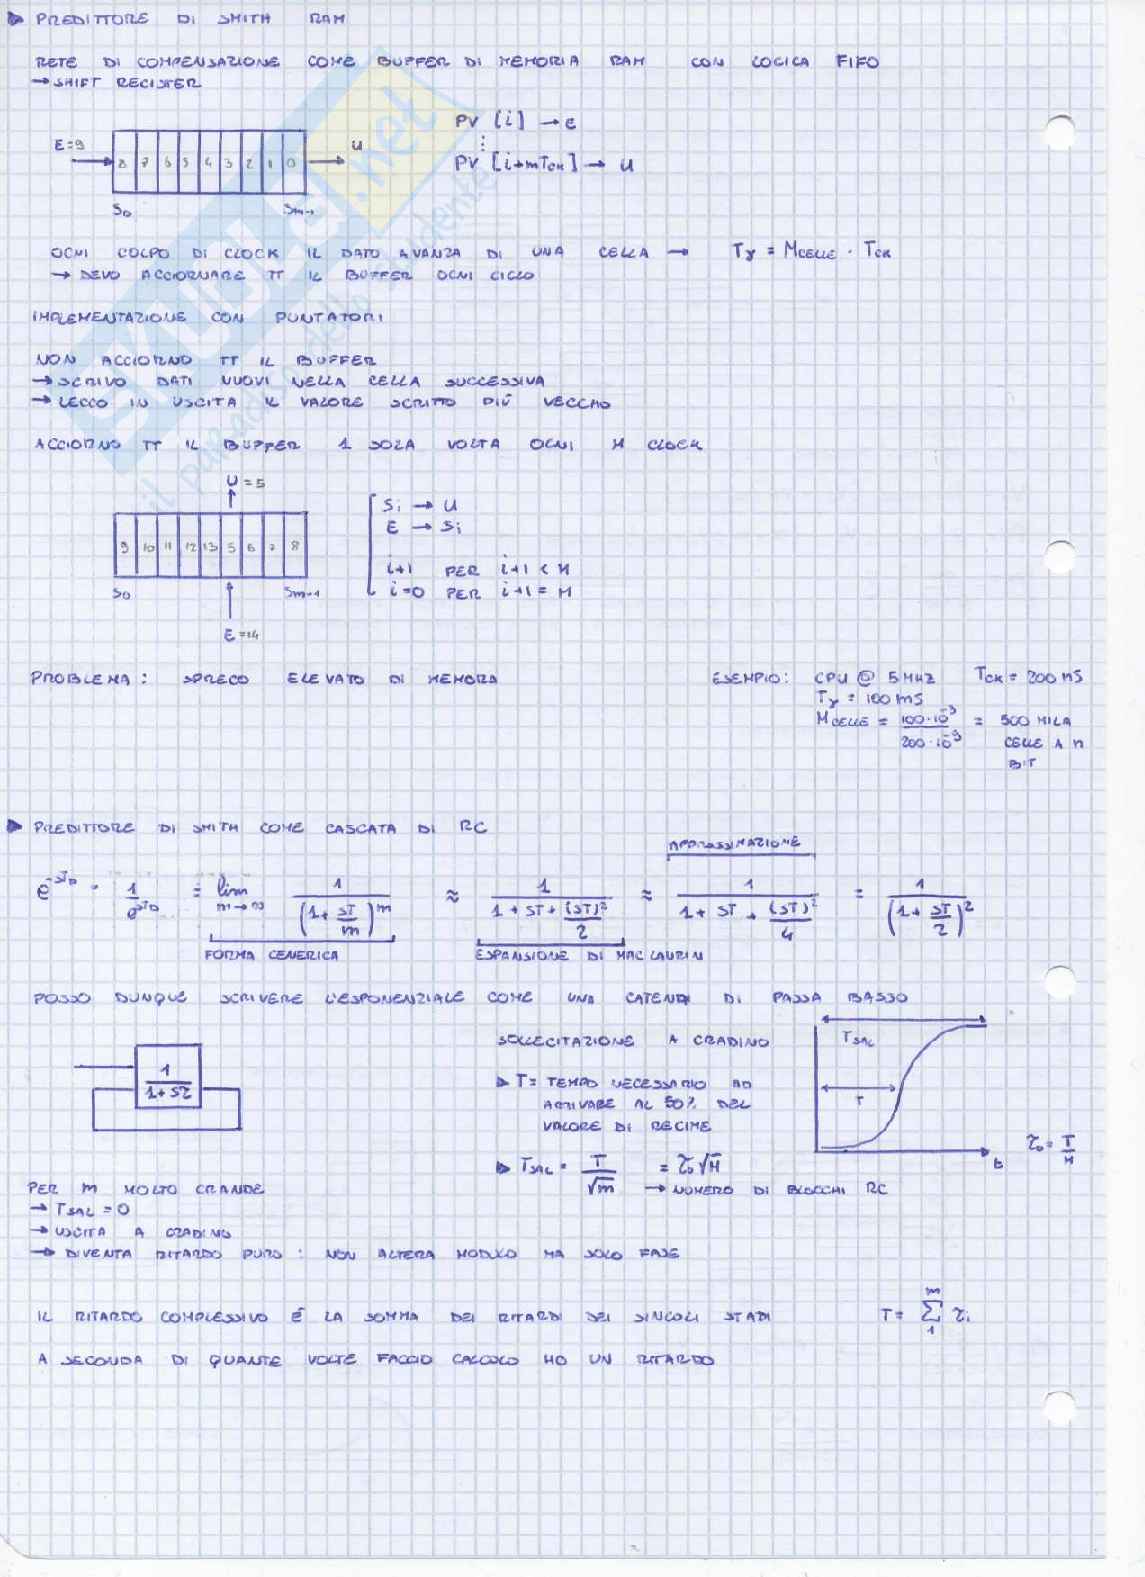 ▶ PREDITTORE DI SMITH RAM
RETE DI COMPENSAZIONE COME BUFFER DI MEMORIA RAM CON LOGICA FIFO
→ SHIFT REGISTER
PV [i] → e
⋮
E=9 → 8 7 6 5 4 3 2 1 0 → U
PV [i+mTck] → U
S0 Sm-1
OGNI COLPO DI CLOCK IL DATO AVANZA DI UNA CELLA → Tγ = MCELLE · TCK
→ DEVO AGGIORNARE TT IL BUFFER OGNI CICLO
IMPLEMENTAZIONE CON PUNTATORI
NON AGGIORNO TT IL BUFFER
→ SCRIVO DATI NUOVI NELLA CELLA SUCCESSIVA
→ LEGGO IN USCITA IL VALORE SCRITTO PIÙ VECCHIO
AGGIORNO TT IL BUFFER 1 SOLA VOLTA OGNI M CLOCK
U = 5
Si → U
E → Si
9 10 11 12 13 5 6 7 8
i+1 PER i+1 < M
i=0 PER i+1 = M
S0 Sm-1
E = 14
PROBLEMA: SPRECO ELEVATO DI MEMORIA
ESEMPIO: CPU @ 5MHZ TCK = 200 nS
Tγ = 100 mS
MCELLE = 100·10^-3 / 200·10^-9 = 500 MILA
CELLE A n
BIT
▶ PREDITTORE DI SMITH COME CASCATA DI RC
APPROSSIMAZIONE
e^-STD = 1/e^STD = lim m→∞ 1/(1+ST/m)^m ≈ 1/(1+ST+(ST)^2/2) ≈ 1/(1+ST+(ST)^2/4) = 1/(1+ST/2)^2
FORMA GENERICA ESPANSIONE DI MAC LAURIN
POSSO DUNQUE SCRIVERE L'ESPONENZIALE COME UNA CATENA DI PASSA BASSO
SOLLECITAZIONE A GRADINO
TSAL
1/(1+Sτ)
▶ T = TEMPO NECESSARIO AD
ARRIVARE AL 50% DEL
VALORE DI REGIME
T
t
τ0 = T/M
▶ TSAL = T/√m = τ0√M
→ NUMERO DI BLOCCHI RC
PER M MOLTO GRANDE
→ TSAL = 0
→ USCITA A GRADINO
→ DIVENTA RITARDO PURO: NON ALTERA MODULO MA SOLO FASE
IL RITARDO COMPLESSIVO È LA SOMMA DEI RITARDI DEI SINGOLI STADI T = Σ m 1 τi
A SECONDA DI QUANTE VOLTE FACCIO CALCOLO HO UN RITARDO
SKUOLA.net
il paradiso dello studente